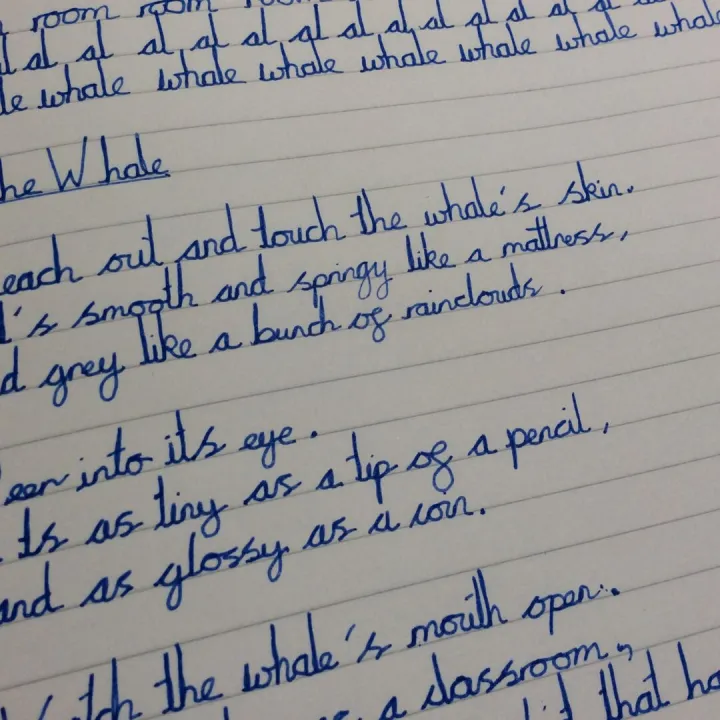 room room
al al al al al al al al al al al al
whale whale whale whale whale whale whale
he Whale
each out and touch the whale's skin.
t's smooth and springy like a mattress,
d grey like a bunch of rainclouds.
eer into its eye.
Its as tiny as a tip of a pencil,
and as glossy as a coin.
Watch the whale's mouth open.
a classroom,
that ha